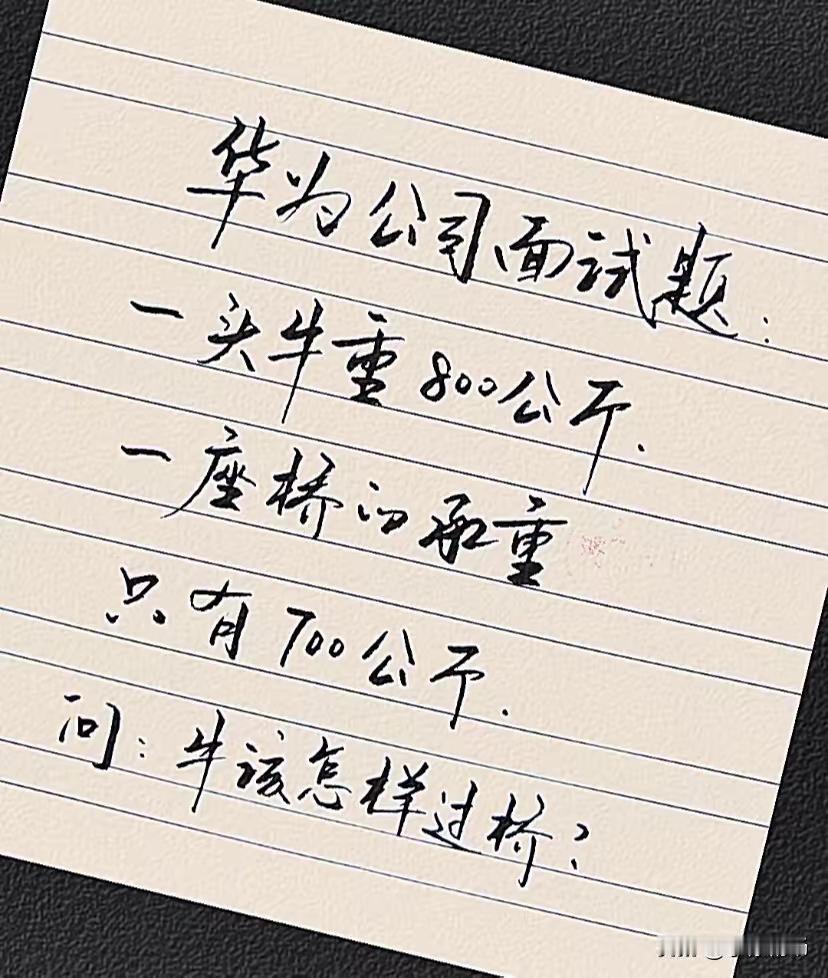 华为公司面试题:
一头牛重800公斤.
一座桥的承重
只有700公斤.
问:牛该怎样过桥?